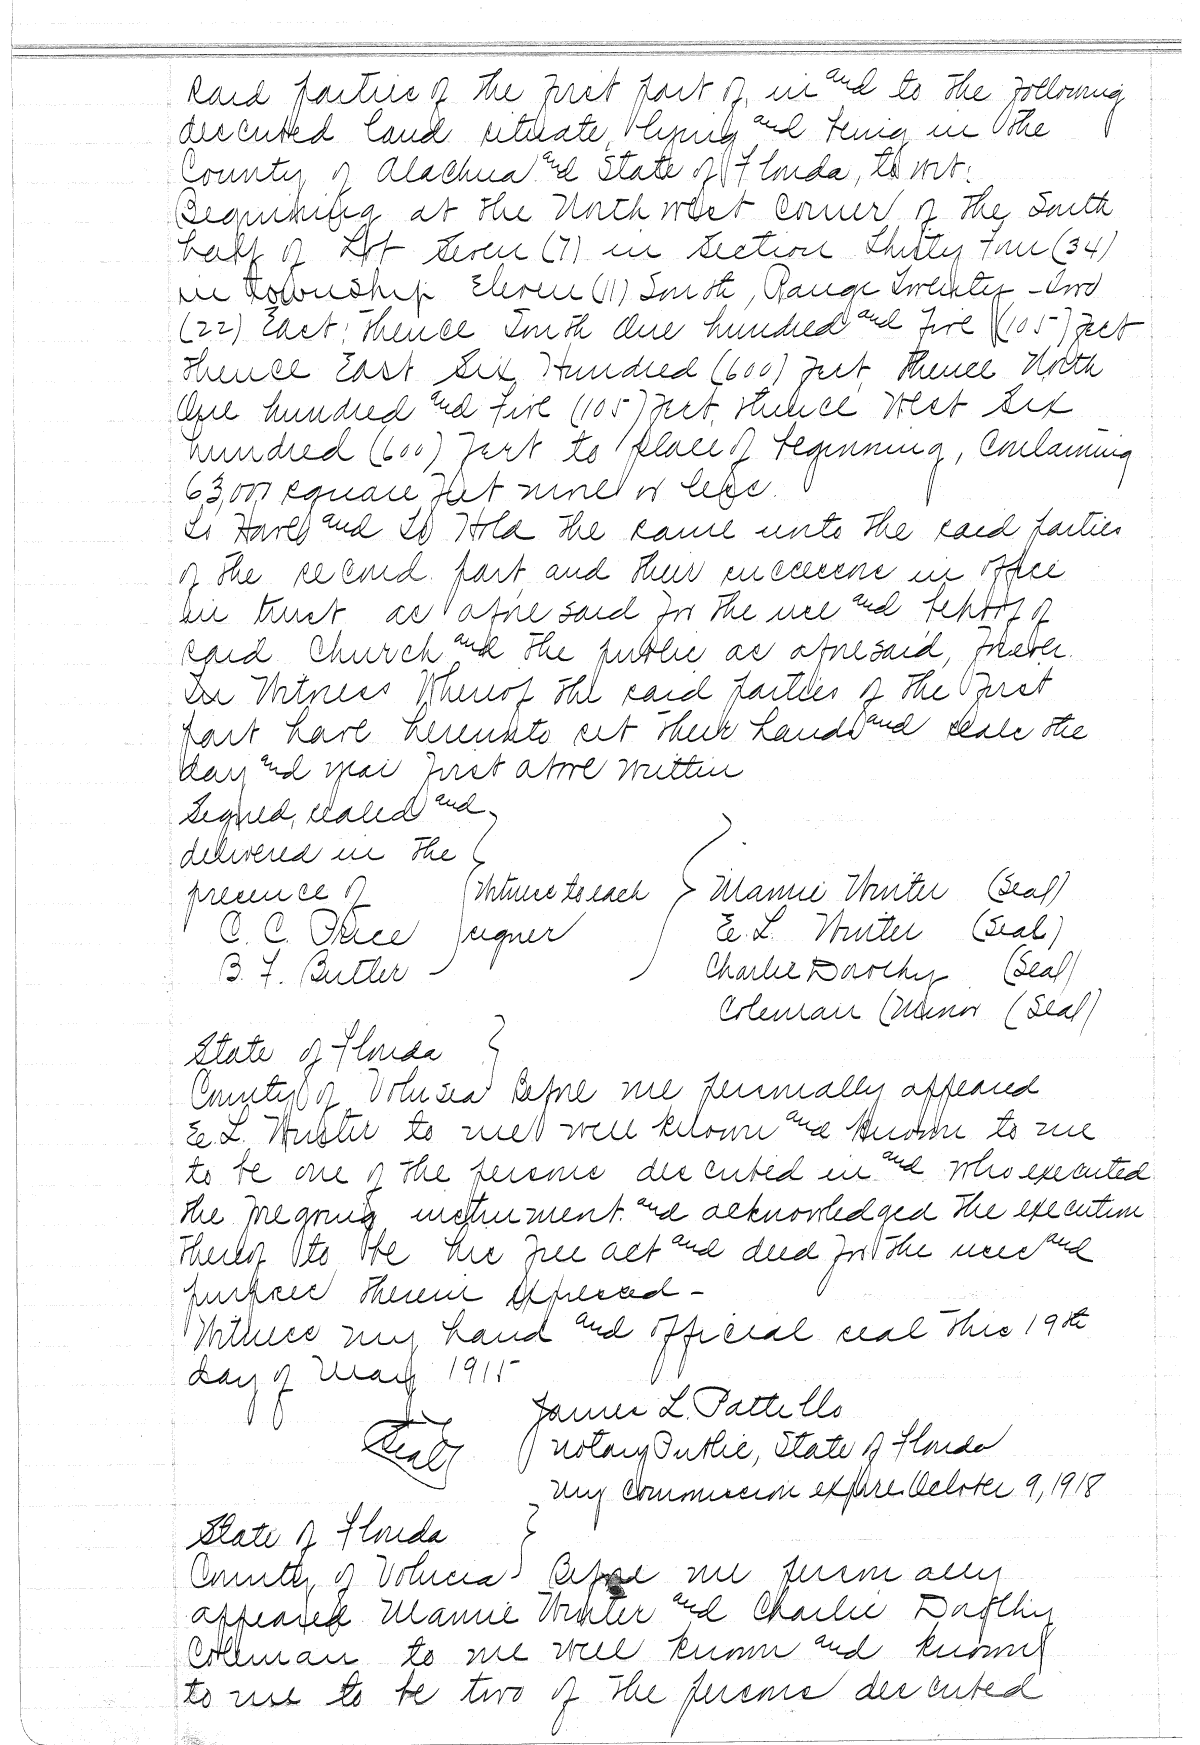 said parties of the first part of, in and to the following
described land situate, lying and being in the
County of Alachua and State of Florida, to wit:
Beginning at the North west corner of the South
half of Lot Seven (7) in Section Thirty Four (34)
in township Eleven (11) South, Range Twenty-Two
(22) East; thence South One hundred and five (105) feet
thence East Six Hundred (600) feet, thence North
One hundred and five (105) feet, thence West Six
hundred (600) feet to place of beginning, Containing
63,000 square feet more or less.
To Have and To Hold the same unto the said parties
of the second part, and their successors in office
in trust as afore said for the use and behoof of
said Church and the public as aforesaid, forever.
In Witness Whereof the said parties of the first
part have hereunto set their hands and seals the
day and year first above written
Signed, sealed and
delivered in the
presence of (Witness to each Mannie Winter (Seal)
C. C. Price signer E. L. Winter (Seal)
B. F. Butler Charlie Dorothy (Seal)
Coleman (Minor (Seal)
State of Florida
County of Volusia Before me personally appeared
E. L. Winter to me well known and known to me
to be one of the persons described in and who executed
the foregoing instrument and acknowledged the execution
thereof to be his free act and deed for the uses and
purposes therein expressed -
Witness my hand and official seal this 19th
day of May 1915
James L. Pattillo
(Seal) Notary Public, State of Florida
My Commission expires October 9, 1918
State of Florida
County of Volusia Before me personally
appeared Mannie Winter and Charlie Dorothy
Coleman to me well known and known
to me to be two of the persons described